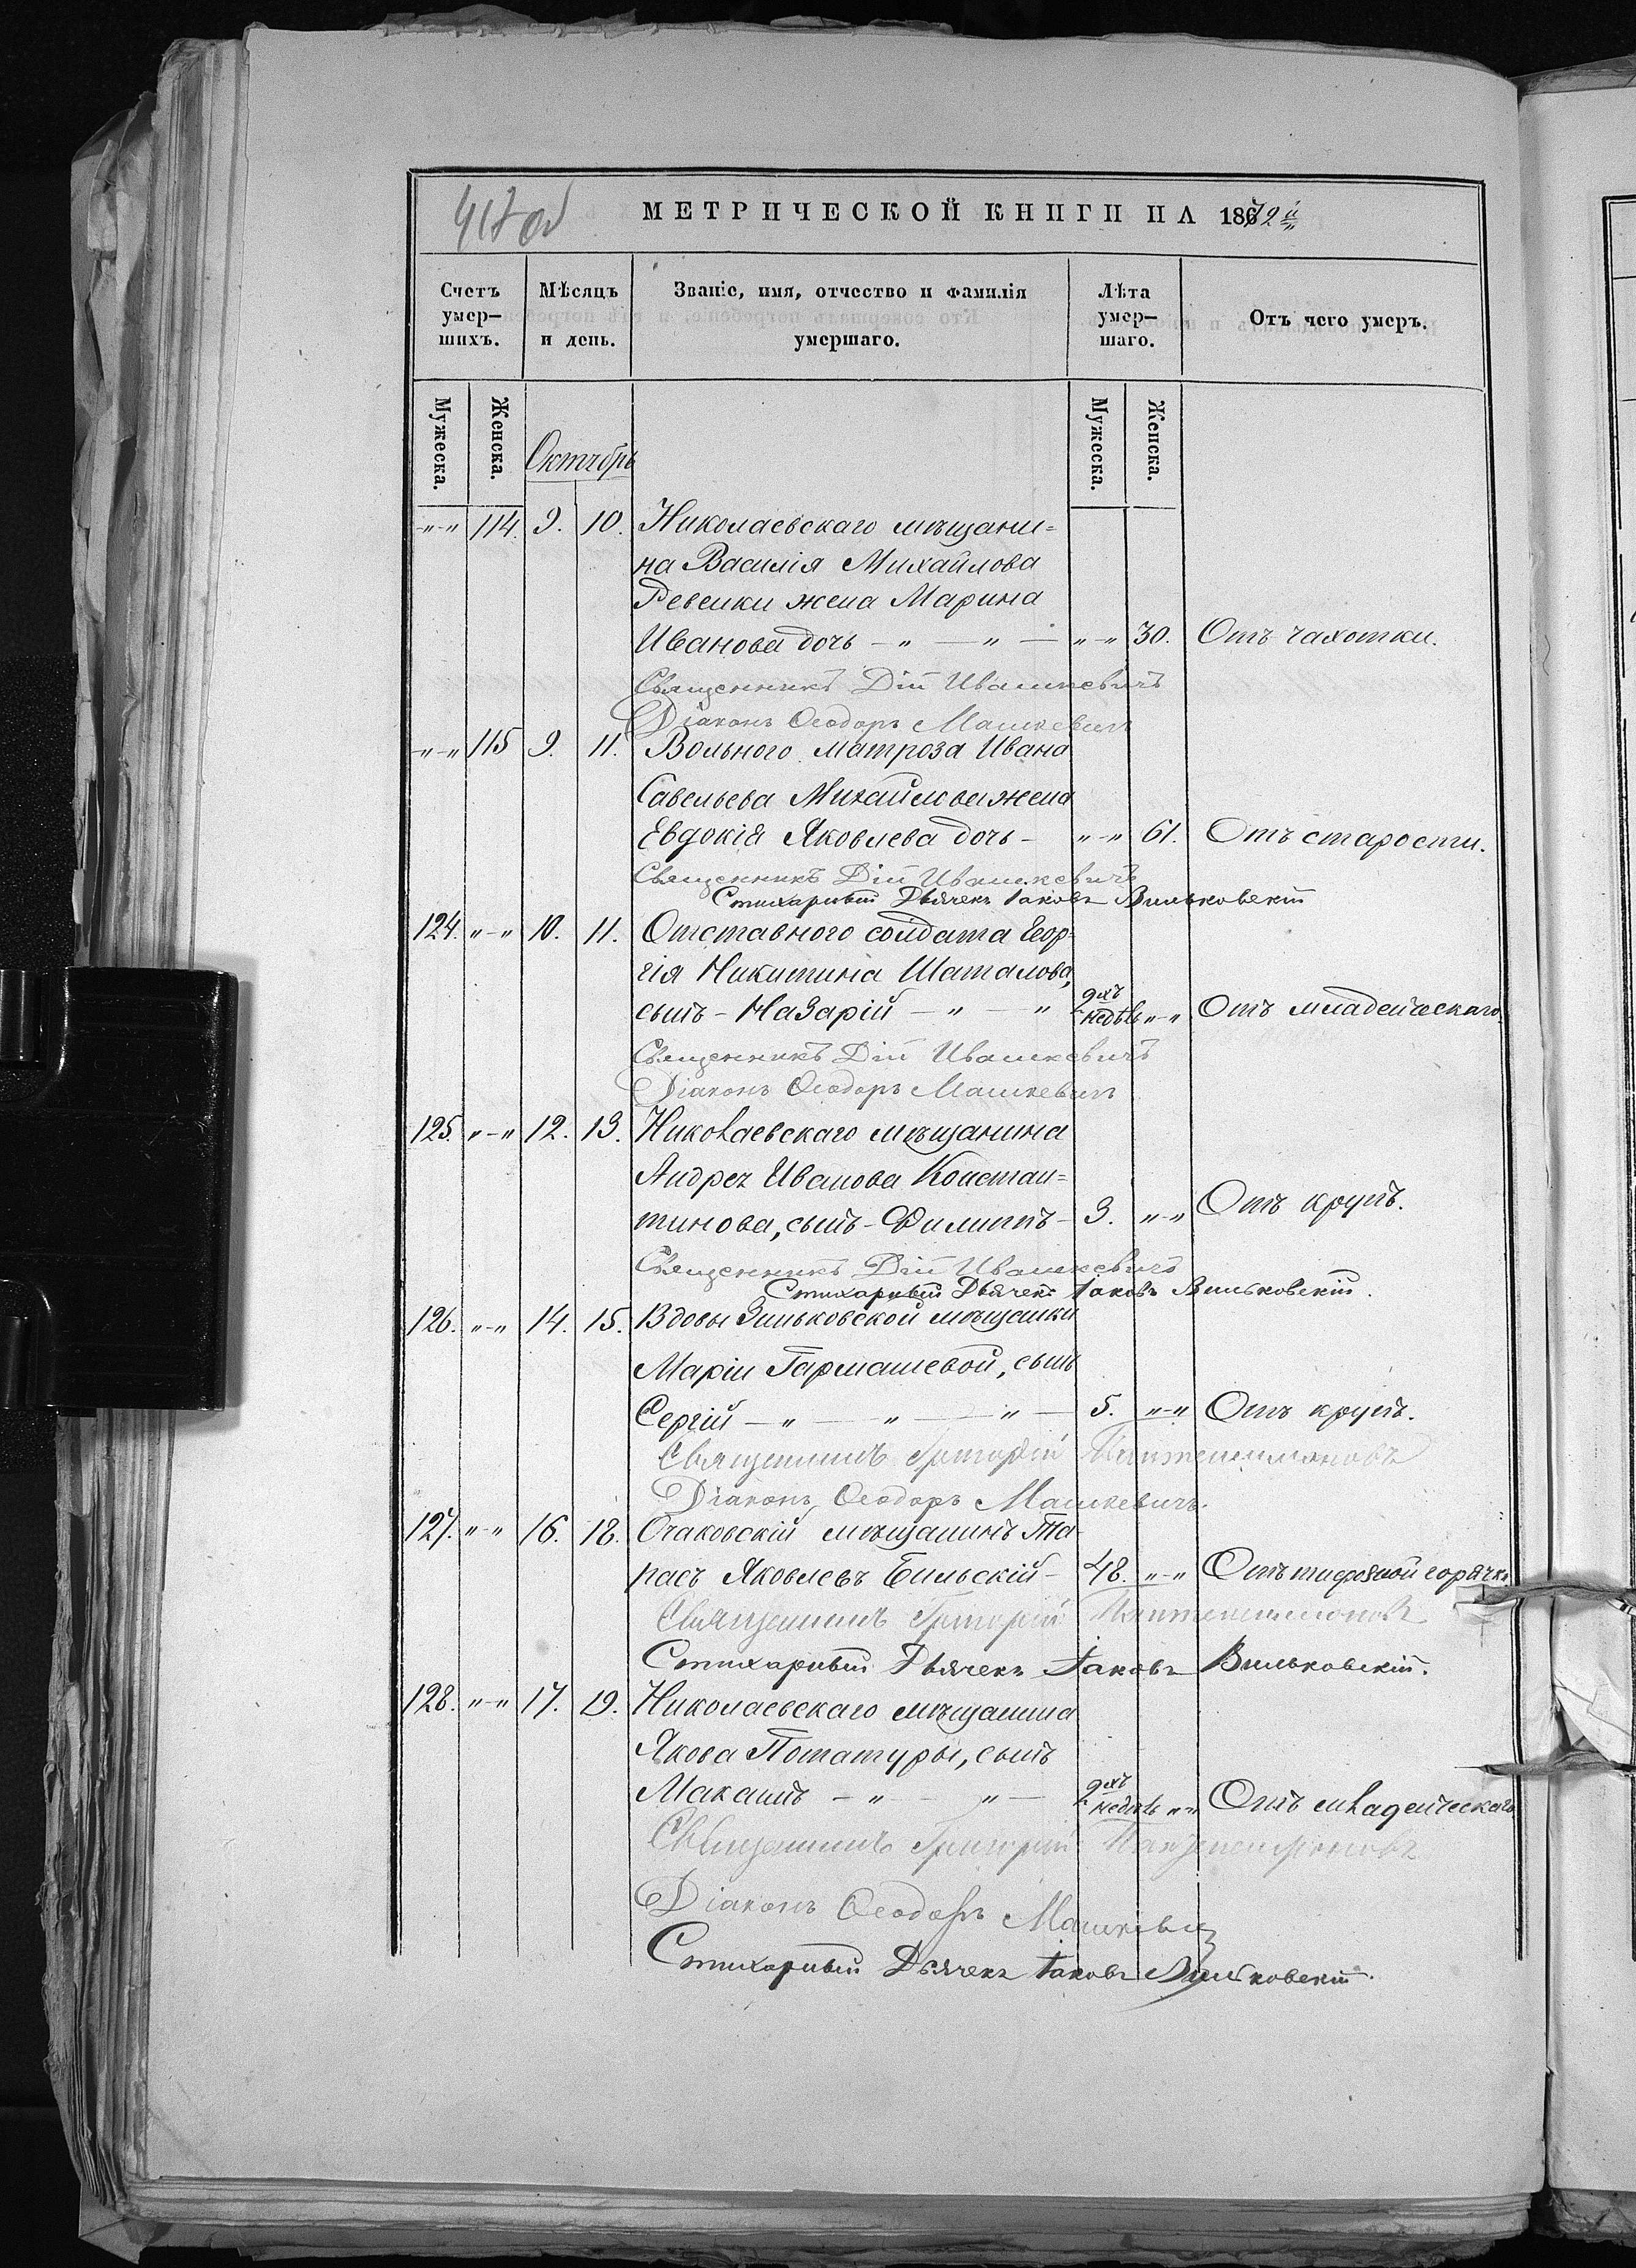 417 об
МЕТРИЧЕСКОЙ КНИГИ НА 1872й
Счетъ умер-шихъ.
Мѣсяцъ и день.
Званіе, имя, отчество и фамилія умершаго.
Лѣта умер-шаго.
Отъ чего умеръ.
Мужеска. Женска. Октябрь Мужеска. Женска.
„-„ 114. 9. 10. Николаевскаго мѣщани=
на Василія Михайлова
Ревенки жена Марина
Иванова дочь - „ - „ - „-„ 30. Отъ чахотки.
Священникъ Дій Ивашкевичъ
Діаконъ Ѳеодоръ Машкевич
„-„ 115 9. 11. Вольного матроза Ивана
Савельева Михайлова жена
Евдокія Яковлева дочь - „-„ 61. Отъ старости.
Священникъ Дій Ивашкевичъ
Стихарный Дьячекъ Іаковъ Вильковскій
124. „-„ 10. 11. Отставного солдата Геор-
гія Никитина Шаталова,
сынъ - Назарій - „ - „ 2хъ недѣль „-„ Отъ младенческаго.
Священникъ Дій Ивашкевичъ
Діаконъ Ѳеодоръ Машкевич
125. „-„ 12. 13. Николаевскаго мѣщанина
Андрея Иванова Констан=
тинова, сынъ - Филиппъ - 3. „-„ Отъ крупъ.
Священникъ Дій Ивашкевичъ
Стихарный Дьячекъ Іаковъ Вильковскій.
126. „-„ 14. 15. Вдовы Зиньковской мѣщанки
Маріи Гармашевой, сынъ
Сергій - „ - „ - „ - 5. „-„ Отъ крупъ.
Священникъ Григорій
Діаконъ Ѳеодоръ Машкевичъ.
127. „-„ 16. 18. Очаковскій мѣщанинъ Та-
расъ Яковлевъ Бильскій - 48. „-„ Отъ тифозной горячк
Священникъ Григорій
Стихарный Дьячекъ Іаковъ Вильковскій.
128. „-„ 17. 19. Николаевскаго мѣщанина
Якова Потатуры, сынъ
Макаитъ - „ - „ - 2хъ недѣль „-„ Отъ младенческаго
Священникъ Григорій
Діаконъ Ѳеодоръ Машкевич
Стихарный Дьячекъ Іаковъ Вильковскій.